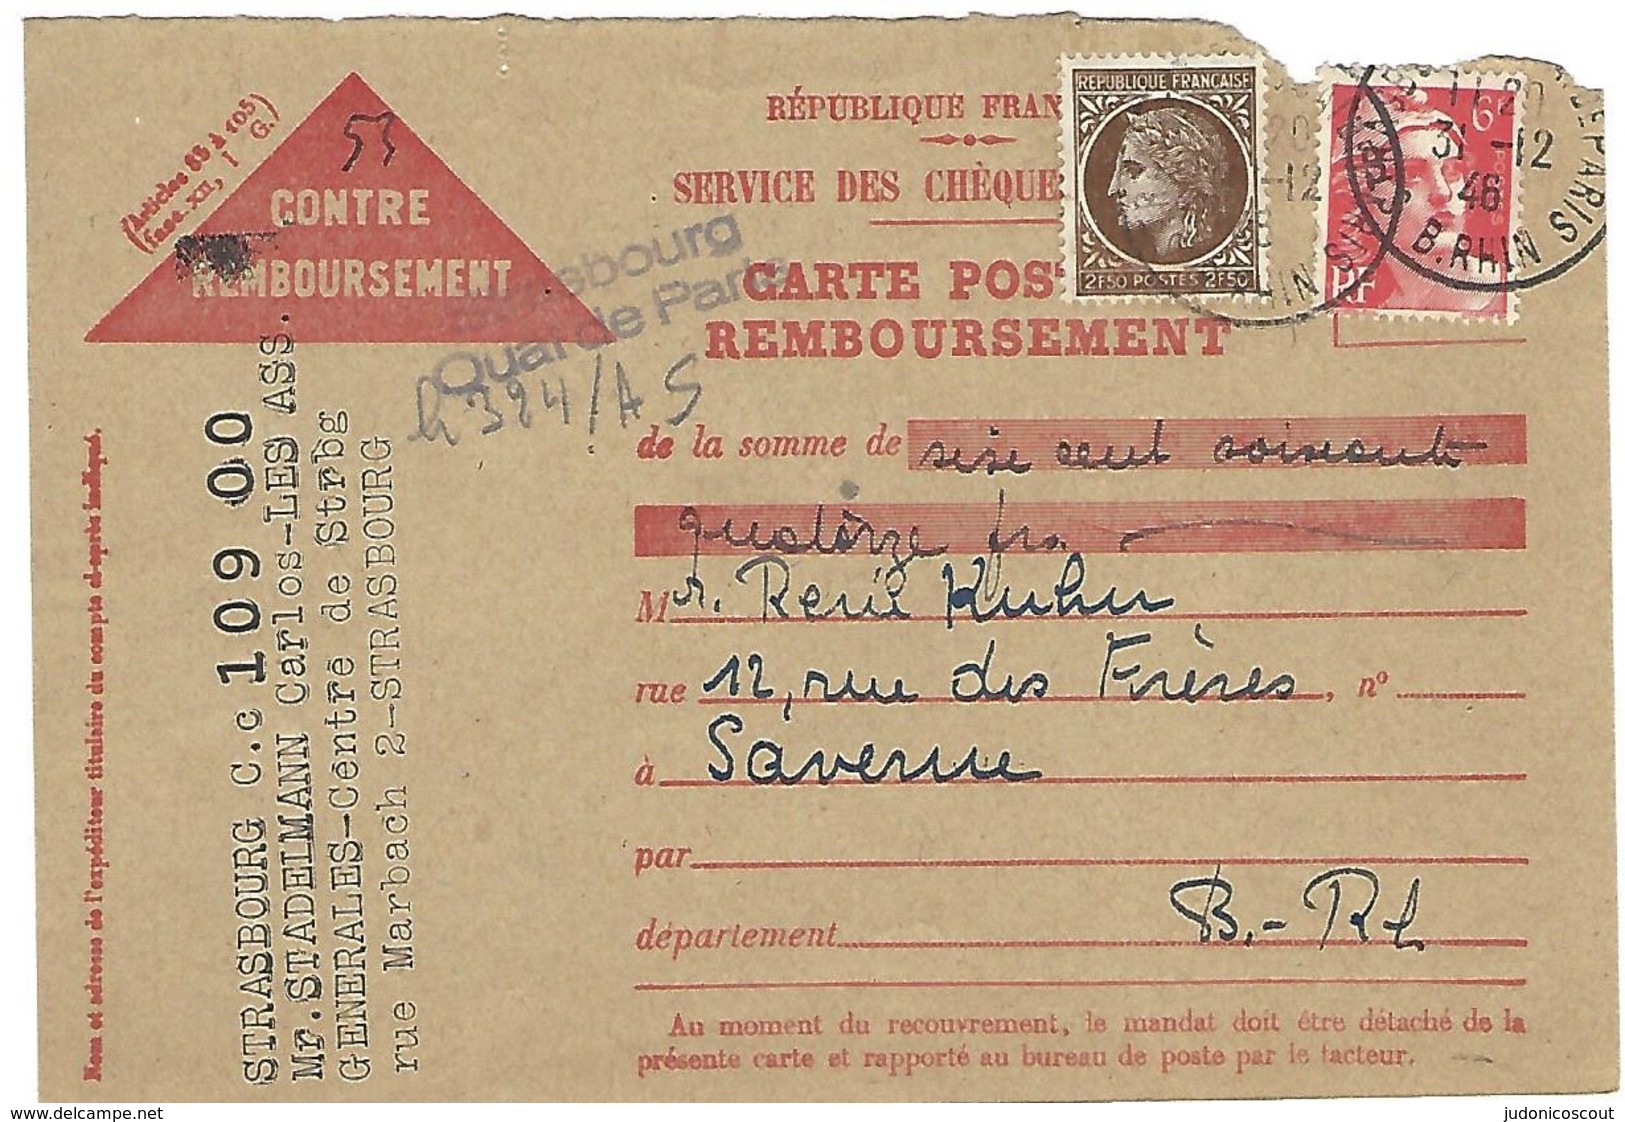 (Articles 85 à 105
fac. XII, I G.)
53
CONTRE
REMBOURSEMENT
RÉPUBLIQUE FRAN
SERVICE DES CHÈQUE
CARTE POST
REMBOURSEMENT
REPUBLIQUE FRANÇAISE
2F50 POSTES 2F50
6F
POSTES
RF
11 20
31 -12
46
B. RHIN
DE PARIS
Strasbourg
Quai de Paris
324/A S
de la somme de seise cent soixante
quatorze frs
Mr. René Kuhn
rue 12, rue des Frères, nº
à Saverne
par
département B.-Rh
Au moment du recouvrement, le mandat doit être détaché de la
présente carte et rapporté au bureau de poste par le facteur.
Nom et adresse de l'expéditeur titulaire du compte d-après indiqué.
STRASBOURG C.c 109 00
Mr.STADELMANN Carlos-LES ASS.
GENERALES-Centre de Strbg
rue Marbach 2-STRASBOURG
www.delcampe.net
judonicoscout